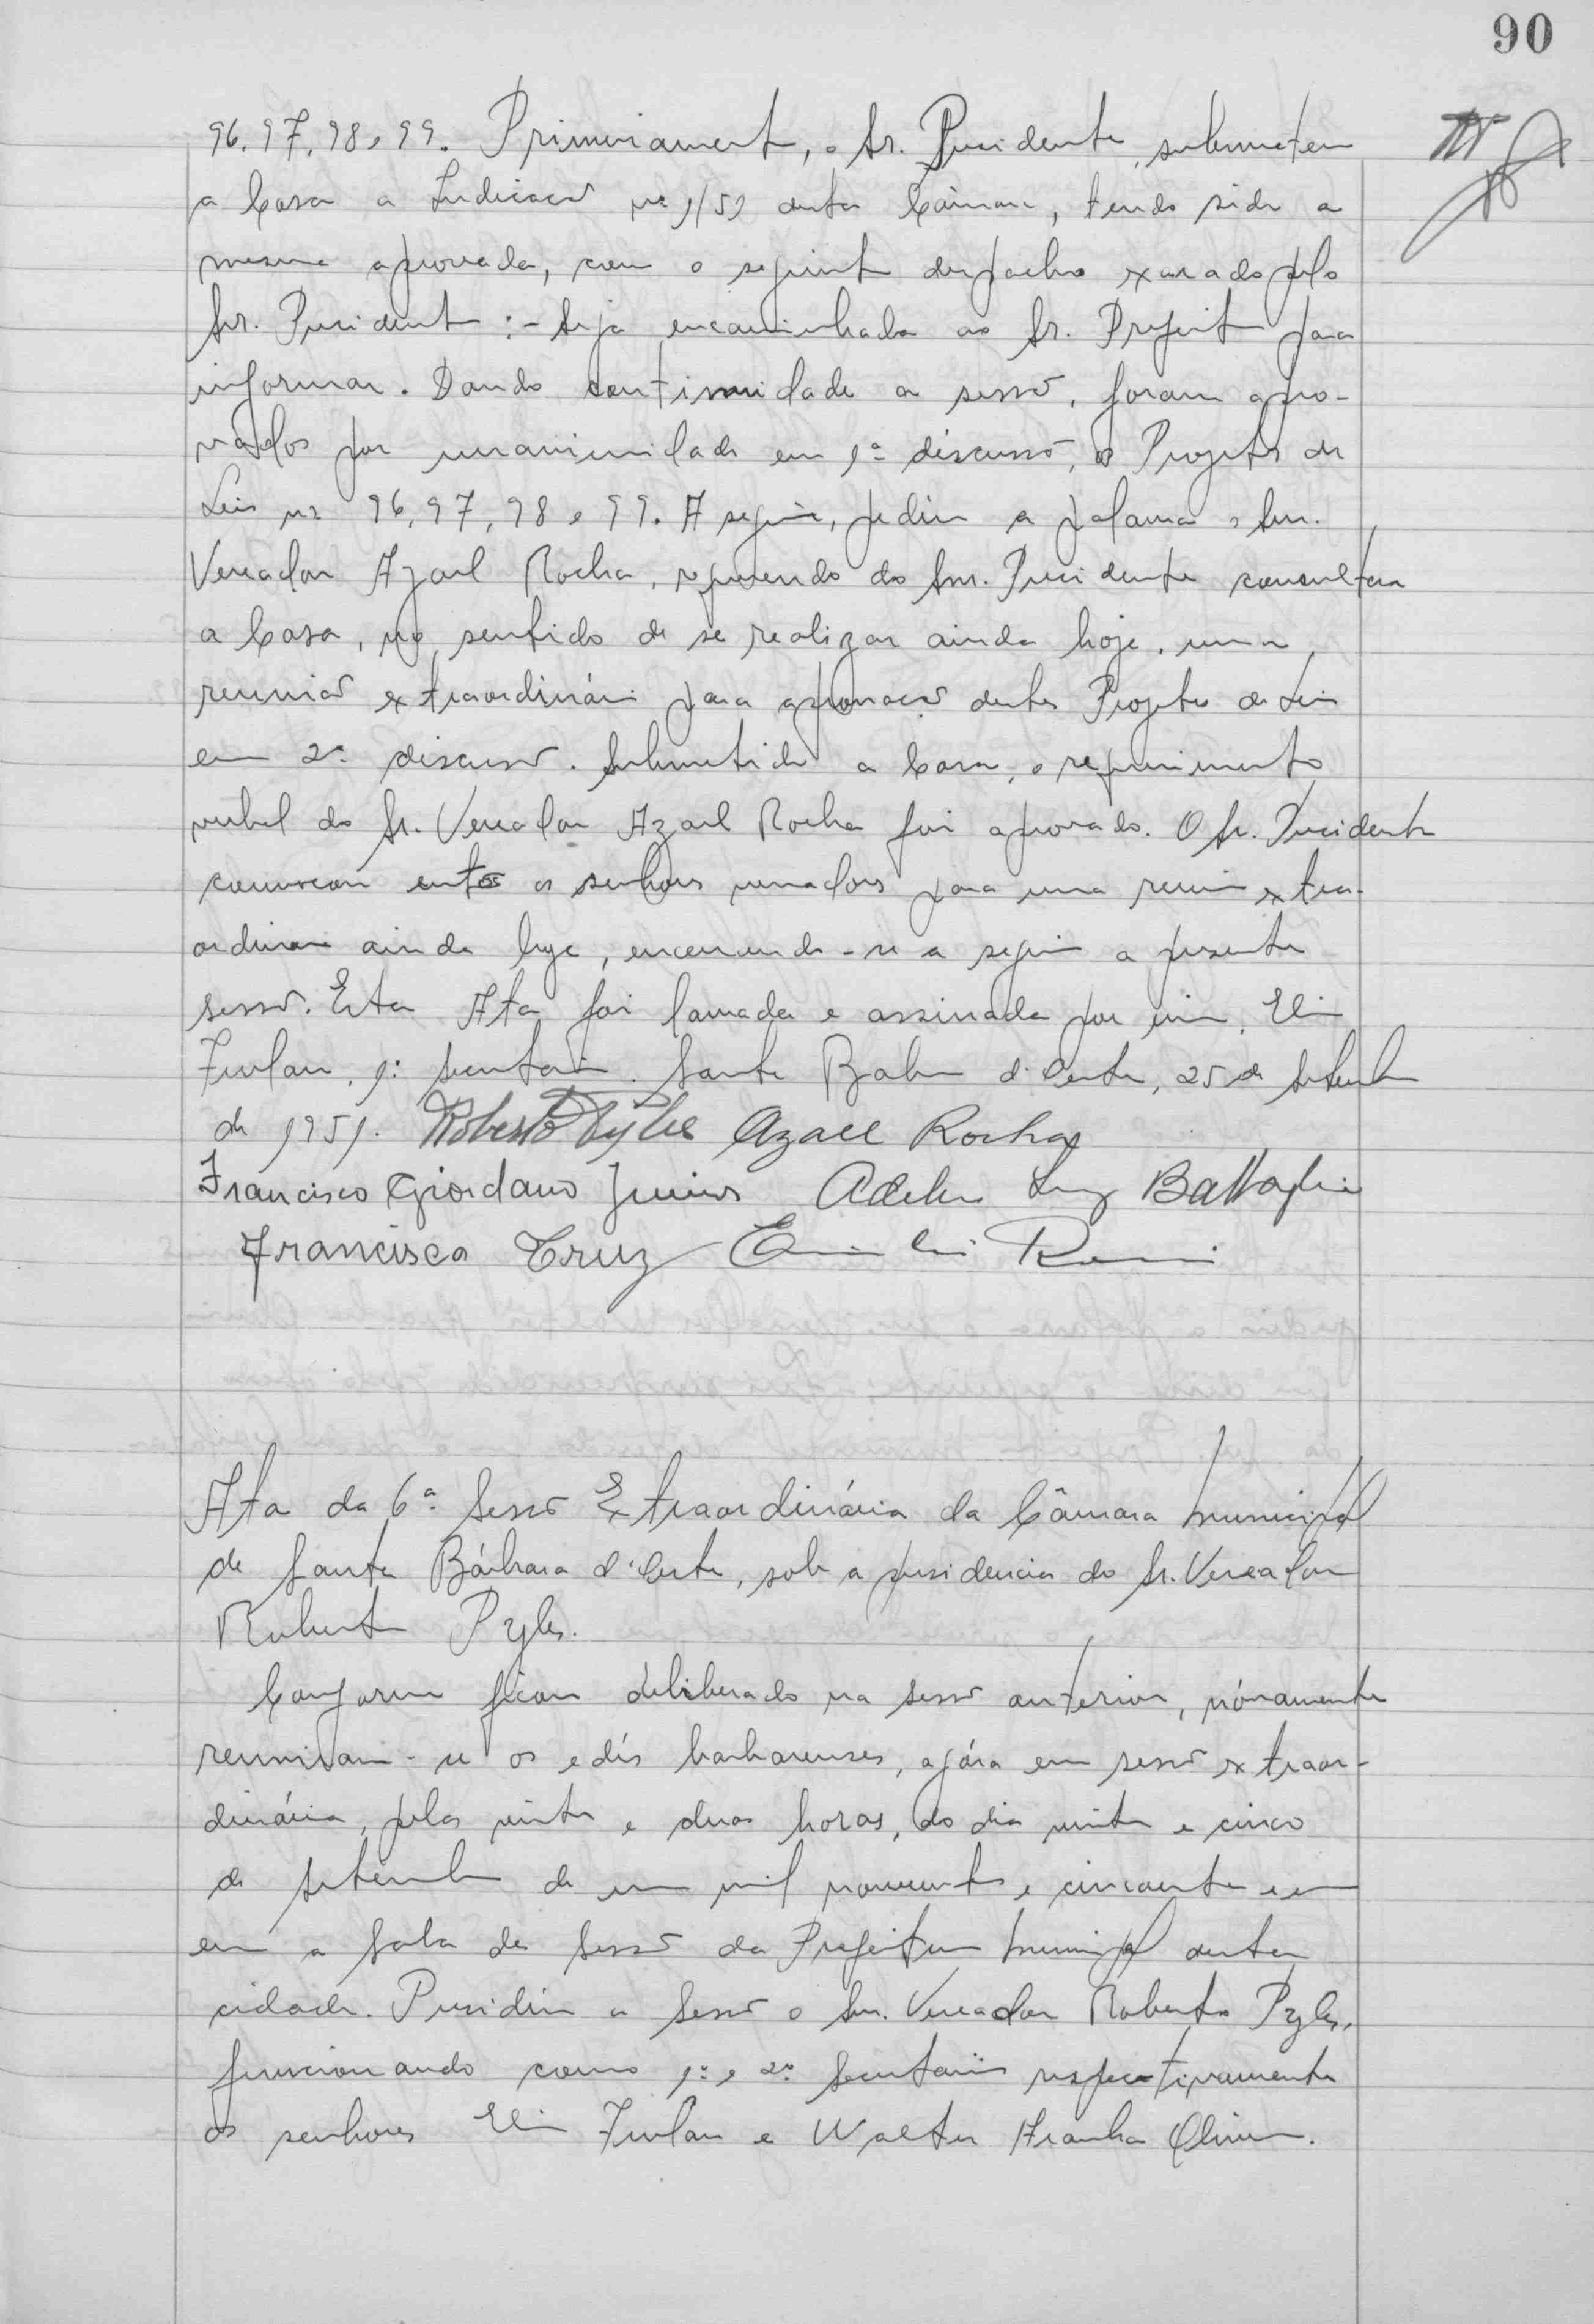 90
96, 97, 98 e 99. Primeiramente, o Sr. Presidente, submeteu
a Casa a Indicação nº 1/51 desta Câmara, tendo sido a
mesma aprovada, com o seguinte despacho exarado pelo
Snr. Presidente :- Seja encaminhada ao Sr. Prefeito para
informar. Dando continuidade a sessão, foram apro-
vados por unanimidade em 1ª discussão, os Projetos de
Leis nº 96, 97, 98 e 99. A seguir, pediu a palavra o Snr.
Vereador Azael Rocha, requerendo do Snr. Presidente consultar
a Casa, no sentido de se realizar ainda hoje, uma
reunião extraordinária para aprovação destes Projetos de Leis
em 2ª discussão. Submetido a Casa, o requerimento
verbal do Sr. Vereador Azael Rocha foi aprovado. O Sr. Presidente
convocou então os senhores vereadores para uma reunião extra-
ordinária ainda hoje, encerrando-se a seguir a presente
sessão. Esta Ata foi lavrada e assinada por mim,
Furlan, 1º secretário. Santa Bárbara d'Oeste, 25 de Setembro
de 1951. Roberto Pyles Azael Rocha
Francisco Giordano Junior Luiz Battaglia
Francisco Cruz
Ata da 6ª Sessão Extraordinária da Câmara Municipal
de Santa Bárbara d'Oeste, sob a presidencia do Sr. Vereador
Roberto Pyles.
Conforme ficou deliberado na sessão anterior, nóvamente
reuniram-se os edís barbarenses, agóra em sessão extraor-
dinária, pelas vinte e duas horas, do dia vinte e cinco
de Setembro de um mil novecentos e cincoenta e um
em a Sala de Sessão da Prefeitura Municipal desta
cidade. Presidiu a Sessão o Snr. Vereador Roberto Pyles,
funcionando como 1º e 2º Secretários respectivamente
os senhores Furlan e Walter Aranha Oliveira.